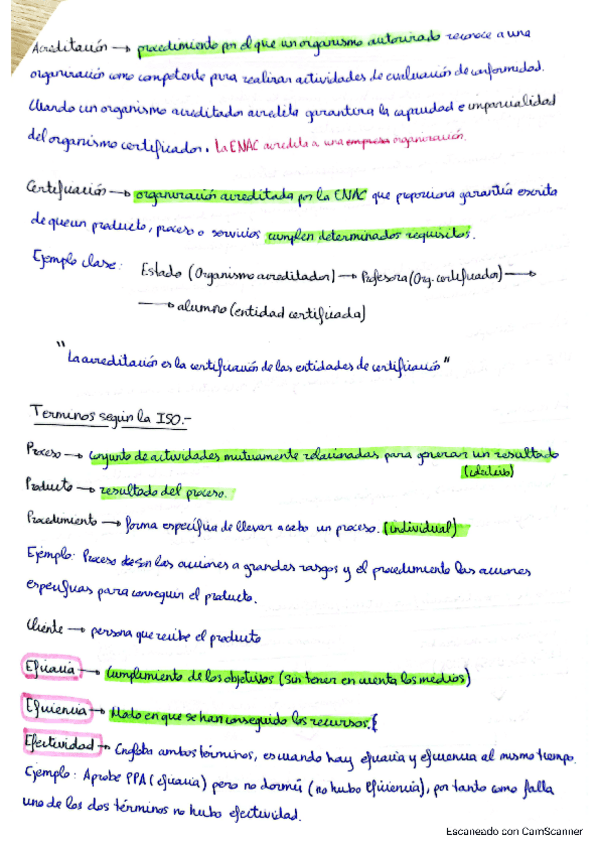 Acreditación → procedimiento por el que un organismo autorizado reconoce a una
organización como competente para realizar actividades de evaluación de conformidad.
Cuando un organismo acreditador acredita garantiza la capacidad e imparcialidad
del organismo certificador. La ENAC acredita a una empresa organización.
Certificación → organización acreditada por la ENAC que proporciona garantía escrita
de que un producto, proceso o servicios cumplen determinados requisitos.
Ejemplo clase: Estado (Organismo acreditador) → Profesora (Org. certificador) →
→ alumno (entidad certificada)
"La acreditación es la certificación de las entidades de certificación"
Terminos según la ISO.-
Proceso → conjunto de actividades mutuamente relacionadas para generar un resultado
(colectivo)
Producto → resultado del proceso.
Procedimiento → forma específica de llevar a cabo un proceso. (individual)
Ejemplo: Proceso son las acciones a grandes rasgos y el procedimiento las acciones
específicas para conseguir el producto.
Cliente → persona que recibe el producto
Eficacia → Cumplimiento de los objetivos (sin tener en cuenta los medios)
Eficiencia → Modo en que se han conseguido los recursos.{
Efectividad → Engloba ambos términos, es cuando hay eficacia y eficiencia al mismo tiempo.
Ejemplo: Aprobé PPA (eficacia) pero no dormí (no hubo eficiencia), por tanto como falla
uno de los dos términos no hubo efectividad.
Escaneado con CamScanner